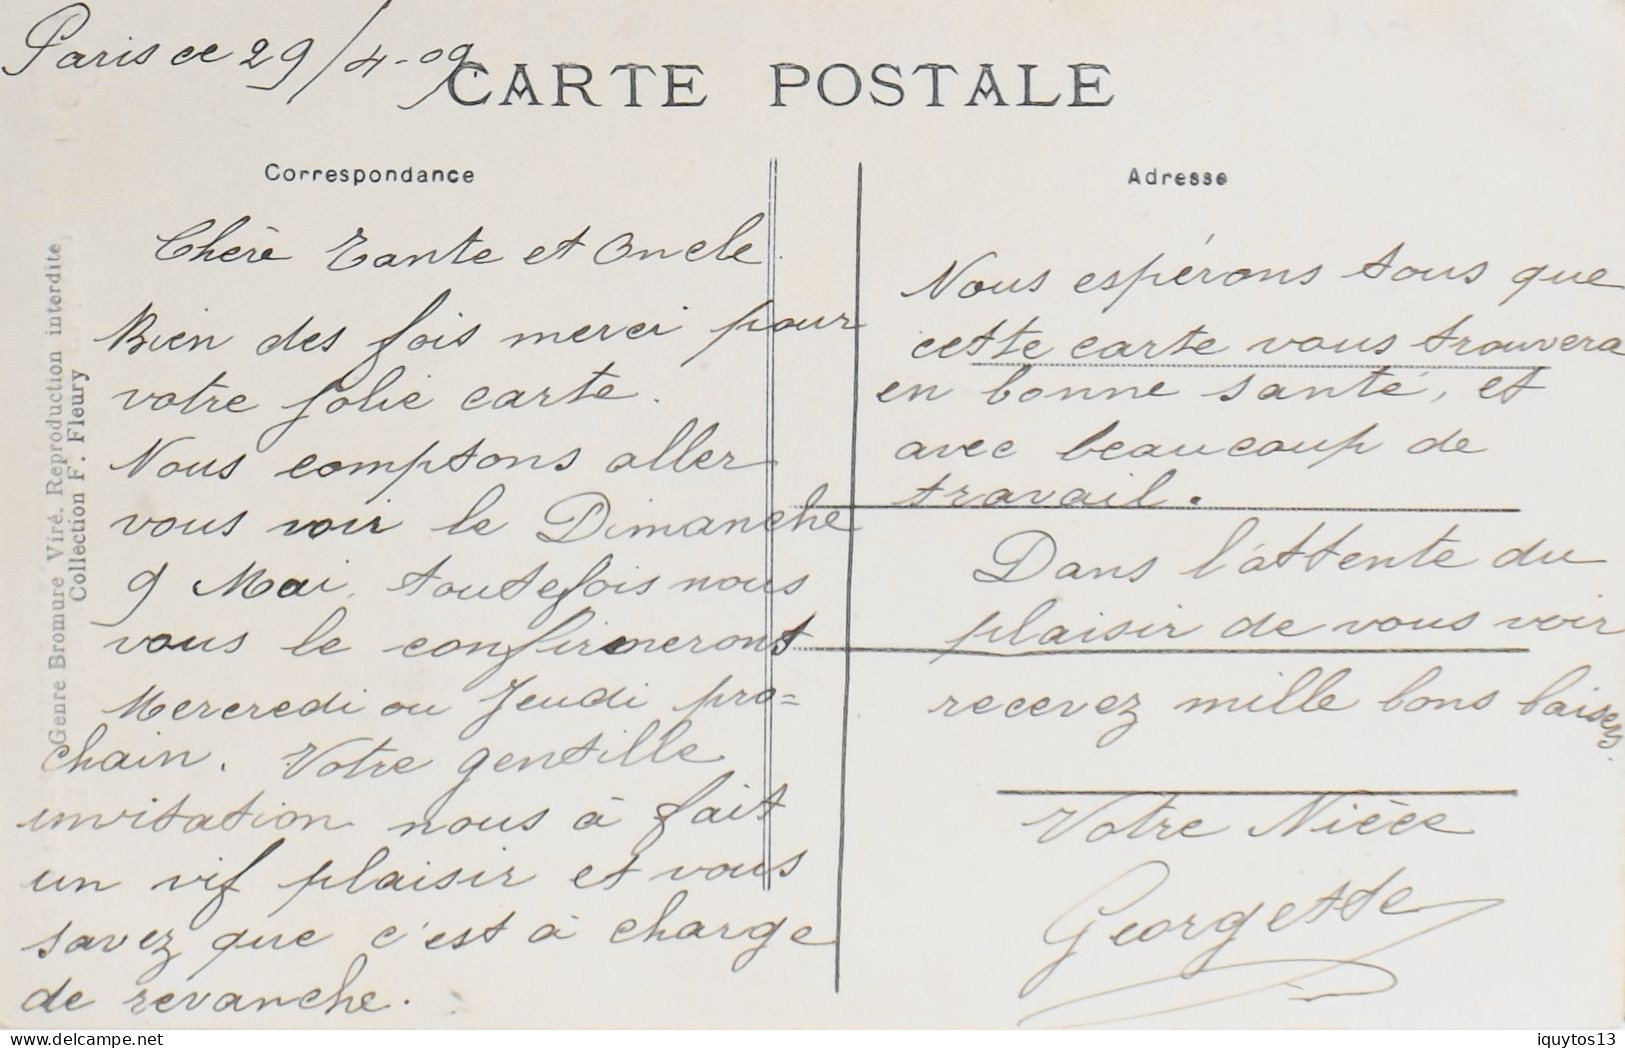 Paris ce 29/4-09
CARTE POSTALE
Correspondance
Adresse
Chère Tante et Oncle.
Bien des fois merci pour
votre jolie carte.
Nous comptons aller
vous voir le Dimanche
9 Mai, toutefois nous
vous le confirmerons
Mercredi ou Jeudi pro=
chain. Votre gentille
invitation nous à fait
un vif plaisir et vous
savez que c'est à charge
de revanche.
Nous espérons tous que
cette carte vous trouvera
en bonne santé, et
avec beaucoup de
travail.
Dans l'attente du
plaisir de vous voir
recevez mille bons baisers.
Votre Nièce
Georgette
Genre Bromure Viré. Reproduction interdite
Collection F. Fleury
iquytos13